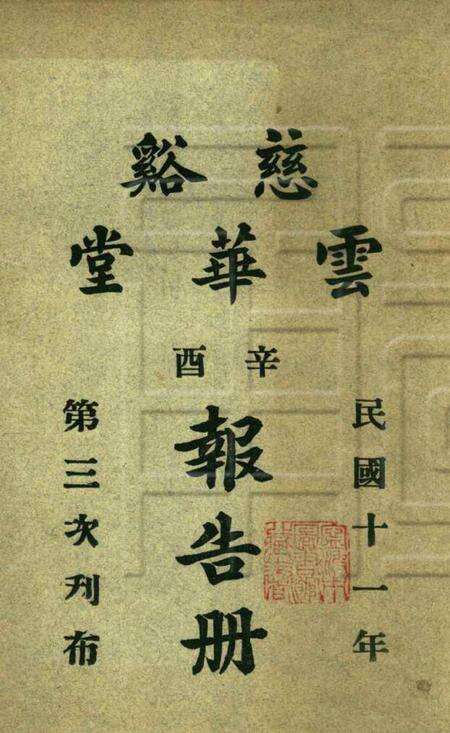 慈谿
雲華堂
辛酉
報告册
民國十一年
第三次刋布